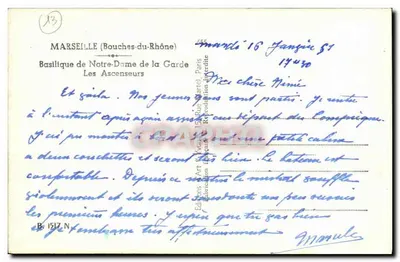 13
MARSEILLE (Bouches-du-Rhône)
Basilique de Notre-Dame de la Garde
Les Ascenseurs
mardi 16 Janvier 51
17h30
Ma chère Mémé
Et voilà. Nos jeunes gens sont partis. Je rentre
à l'instant après avoir assisté au départ des
J'ai pu monter à bord. Ils ont une petite cabine
a deux couchettes et seront très bien. Le bateau est
confortable. Depuis ce matin le mistral souffle
violemment et ils seront sans doute un peu secoués
les premières heures. J'espère que tu vas bien
et je t'embrasse très affectueusement
B. 1917 N.